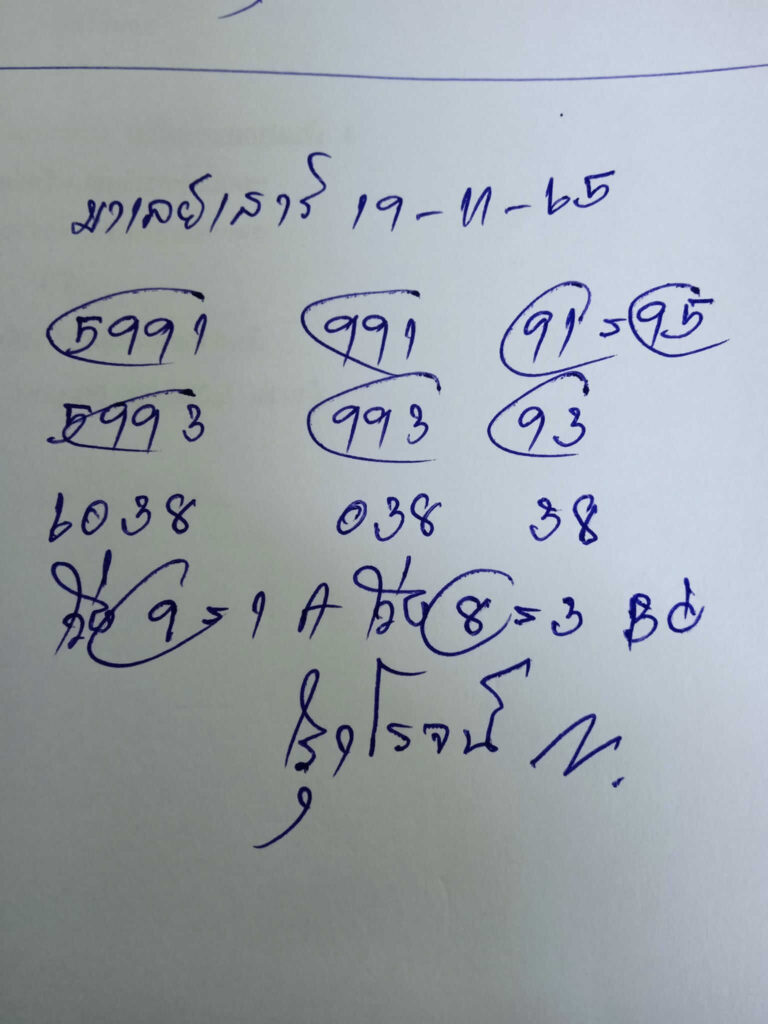 มาเลย์เสาร์ 19-11-65
5991 991 91=95
5993 993 93
6038 038 38
วิ่ง 9=1 A วิ่ง 8=3 B
โรจน์ N.